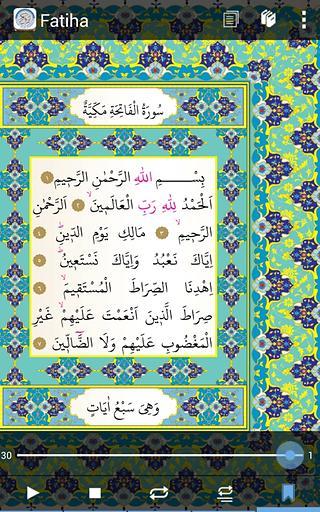 Fatiha
سُورَةُ الْفَاتِحَةِ مَكِّيَّةٌ
بِسْـــمِ اللّٰهِ الرَّحْمٰنِ الرَّحِيمِ ١
اَلْحَمْدُ لِلّٰهِ رَبِّ الْعَالَمِينَۙ ٢ اَلرَّحْمٰنِ
الرَّحِيمِۙ ٣ مَالِكِ يَوْمِ الدّ۪ينِۜ ٤
اِيَّاكَ نَعْبُدُ وَاِيَّاكَ نَسْتَع۪ينُۜ ٥
اِهْدِنَا الصِّرَاطَ الْمُسْتَق۪يمَۙ ٦
صِرَاطَ الَّذ۪ينَ اَنْعَمْتَ عَلَيْهِمْۙ غَيْرِ
الْمَغْضُوبِ عَلَيْهِمْ وَلَا الضَّٓالّ۪ينَ ٧
وَهِىَ سَبْعُ اٰيَاتٍ
30 1